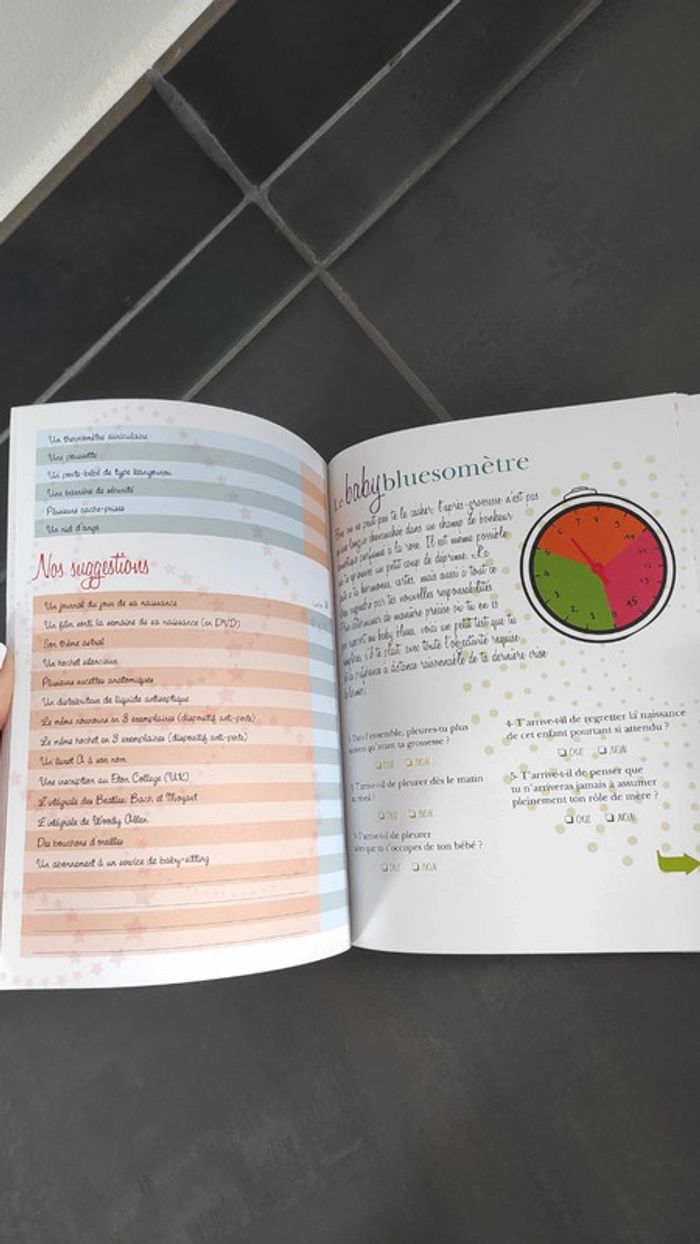 Un thermomètre auriculaire
Une poussette
Un porte-bébé de type kangourou
Une barrière de sécurité
Plusieurs cache-prises
Un nid d'ange
Nos suggestions
Un journal du jour de sa naissance
Un film sorti la semaine de sa naissance (en DVD)
Son thème astral
Un hochet silencieux
Plusieurs sucettes anatomiques
Un distributeur de liquide antiseptique
Le même nounours en 3 exemplaires (dispositif anti-perte)
Le même hochet en 3 exemplaires (dispositif anti-perte)
Un livret A à son nom
Une inscription au Eton College (UK)
L'intégrale des Beatles, Bach et Mozart
L'intégrale de Woody Allen
Des bouchons d'oreilles
Un abonnement à un service de baby-sitting
Le babybluesomètre
on ne peut pas te le cacher: l'après-grossesse n'est pas
une longue chevauchée dans un champ de bonheur
parfumé à la rose. Il est même possible
que tu éprouves un petit coup de déprime. La
aux hormones, certes, mais aussi à tout ce
par tes nouvelles responsabilités.
Pour déterminer de manière précise où tu en es
par rapport au baby blues, voici un petit test que tu
s'il te plaît, avec toute l'objectivité requise
à distance raisonnable de ta dernière crise
de larmes).
Dans l'ensemble, pleures-tu plus
souvent qu'avant ta grossesse ?
❏ OUI ❏ NON
T'arrive-t-il de pleurer dès le matin
❏ OUI ❏ NON
T'arrive-t-il de pleurer
lorsque tu t'occupes de ton bébé ?
❏ OUI ❏ NON
4- T'arrive-t-il de regretter la naissance
de cet enfant pourtant si attendu ?
❏ OUI ❏ NON
5- T'arrive-t-il de penser que
tu n'arriveras jamais à assumer
pleinement ton rôle de mère ?
❏ OUI ❏ NON